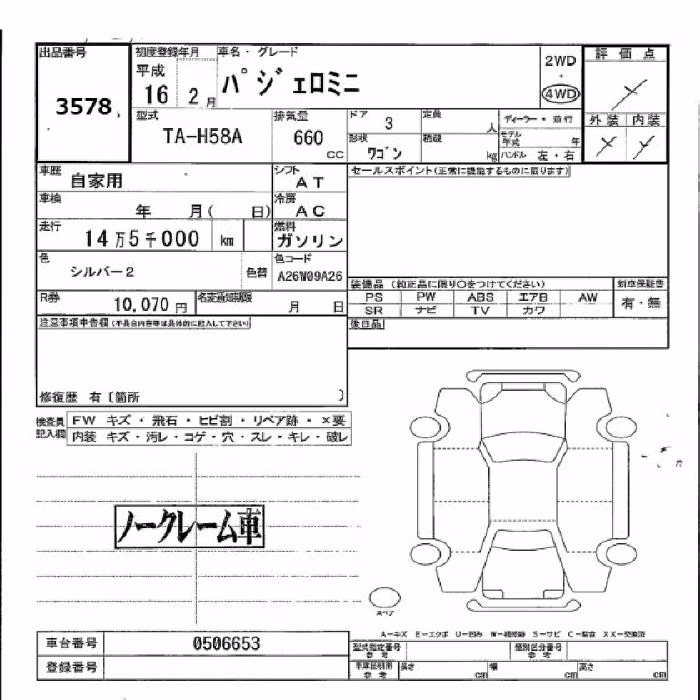 出品番号 初度登録年月 車名・グレード 評価点
3578 平成 16 2月 パジェロミニ 2WD ・ 4WD
外装 内装
型式 TA-H58A 排気量 660 CC ドア 3 定員 人 ディーラー・並行
形状 ワゴン 積載 kg モデル年式 年 ハンドル 左・右
車歴 自家用 シフト AT セールスポイント(正常に機能するものに限ります)
車検 年 月( 日) 冷房 AC
走行 14万5千000 km 燃料 ガソリン
色 シルバー2 色替 色コード A26W09A26
装備品 (純正品に限り○をつけてください) 新車保証書
PS PW ABS エアB AW 有・無
SR ナビ TV カワ
R券 10,070円 名変通知期限 月 日
後日品
注意事項申告欄(不具合内容等は具体的に記入して下さい)
修復歴 有〔箇所 〕
検査員記入欄 FW キズ・飛石・ヒビ割・リペア跡・×要
内装 キズ・汚レ・コゲ・穴・スレ・キレ・破レ
ノークレーム車
スペア
車台番号 0506653
登録番号
型式指定番号 参考 類別区分番号 参考
長さ cm 幅 cm 高さ cm